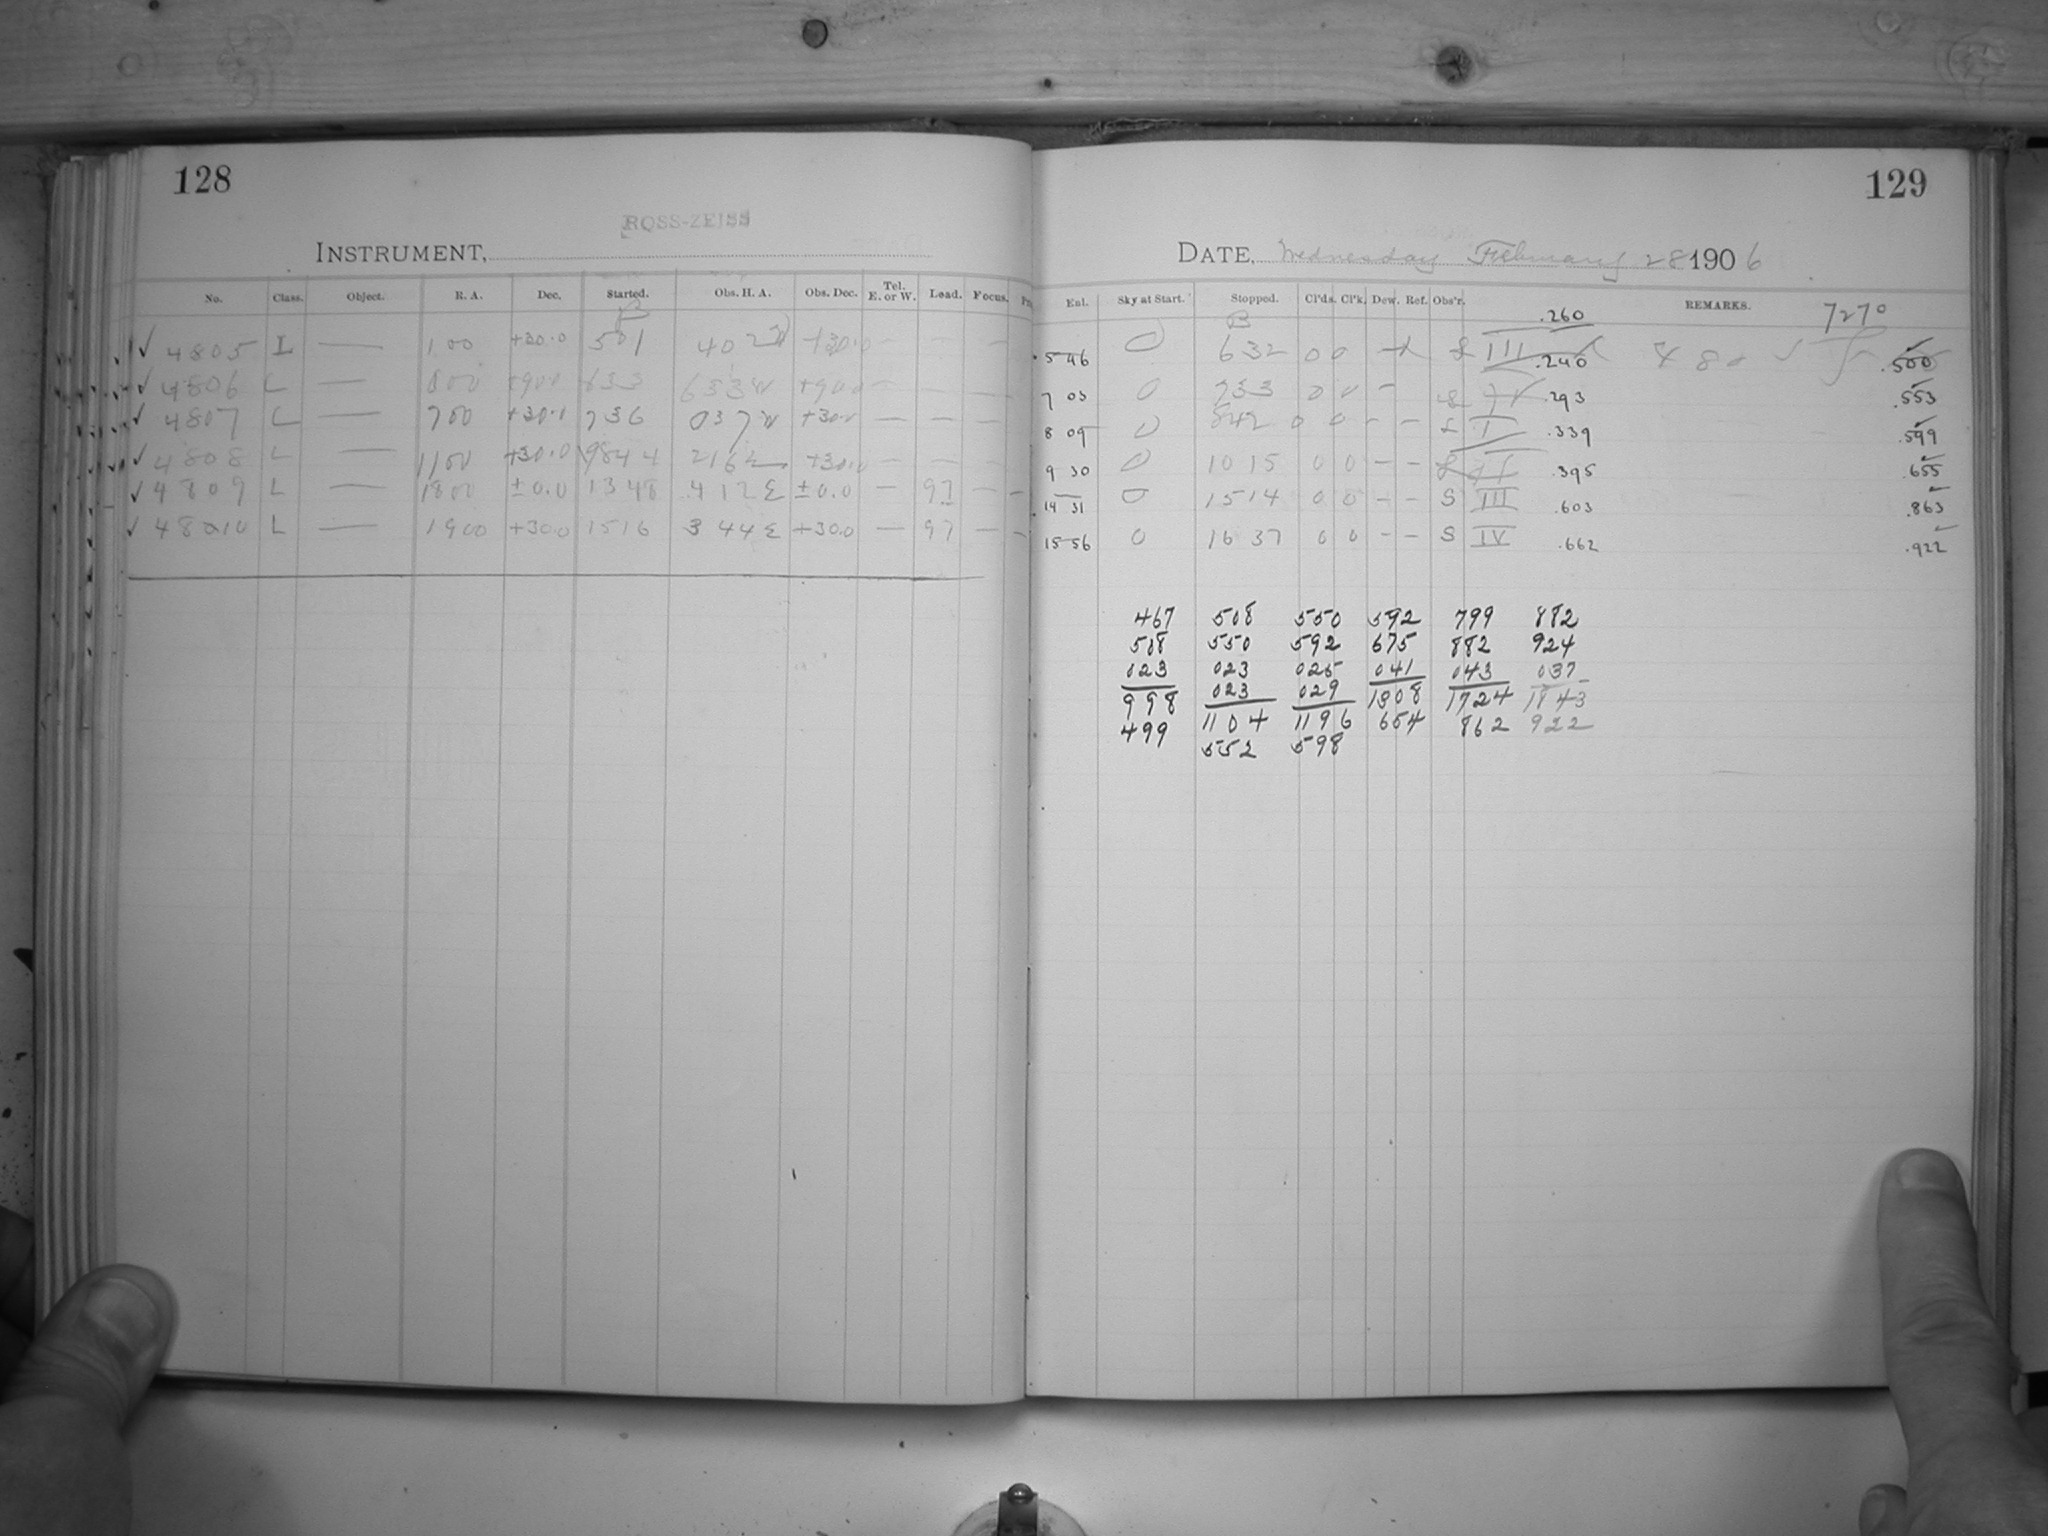 128
ROSS-ZEISS
INSTRUMENT,
No. Class. Object. R. A. Dec. Started. Obs. H. A. Obs. Dec. Tel. E. or W. Lead. Focus.
✓ 4805 L — 100 +30.0 501 402 W +30.0 — — —
✓ 4806 L — 800 +90.0 633 633 W +90.0 — — —
✓ 4807 L — 700 +30.0 736 037 W +30.0 — — —
✓ 4808 L — 1100 +30.0 844 216 +30.0 — — —
✓ 4809 L — 1800 ±0.0 1348 412 E ±0.0 — 97 —
✓ 48010 L — 1900 +30.0 1516 344 E +30.0 — 97 —
129
DATE, Wednesday February 28 1906
Sky at Start. Stopped. Cl'ds. Cl'k. Dew. Ref. Obs'r. REMARKS.
.260 7270
5 46 0 632 0 0 III .240 .500
7 03 0 733 0 0 — .293 .553
8 09 0 842 0 0 — — I .339 .599
9 30 0 1015 0 0 — — .395 .655
14 31 0 1514 0 0 — — S III .603 .863
15 56 0 1637 0 0 — — S IV .662 .922
467 508 550 592 799 882
508 550 592 675 882 924
023 023 025 041 043 037
998 023 029 1308 1724 1843
499 1104 1196 654 862 922
552 598